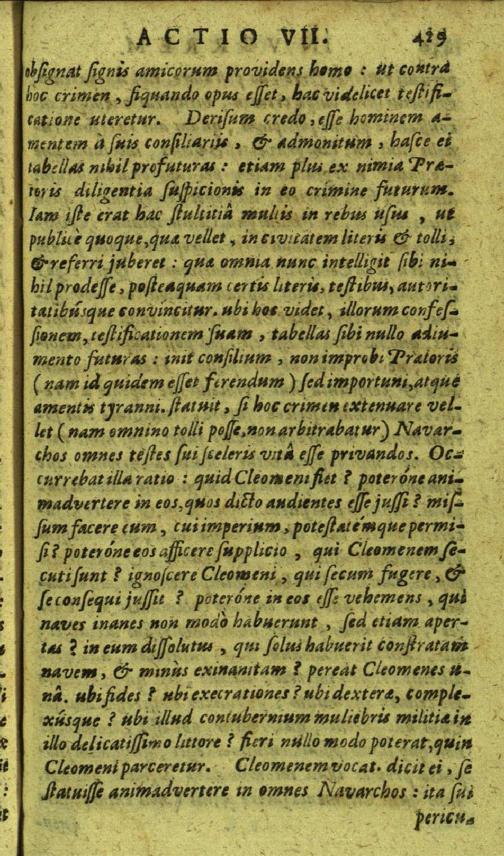 ACTIO VII. 419
obſignat ſignis amicorum providens homo : ut contrà
hoc crimen, ſiquando opus eſſet, hac videlicet teſtifi-
catione uteretur. Deriſum credo, eſse hominem a-
mentem à ſuis conſiliariis, & admonitum, haſce ei
tabellas nihil profuturas : etiam plus ex nimia Præ-
toris diligentia ſuſpicionis in eo crimine futurum.
Iam iſte erat hac ſtultitiâ multis in rebus uſus, ut
publicè quoque, quæ vellet, in civitatem literis & tolli,
& referri juberet : quæ omnia nunc intelligit ſibi ni-
hil prodeſse, poſteaquam certis literis, teſtibus, autori-
tatibúsque convincitur. ubi hoc videt, illorum confeſ-
ſionem, teſtificationem ſuam, tabellas ſibi nullo adiu-
mento futuras : init conſilium, non improbi Prætoris
(nam id quidem eſset ferendum) ſed importuni, atque
amentis tyranni. ſtatuit, ſi hoc crimen extenuare vel-
let (nam omnino tolli poſſe, non arbitrabatur) Navar-
chos omnes teſtes ſui ſceleris vitâ eſse privandos. Oc-
currebat illa ratio : quid Cleomeni fiet ? poteróne ani-
madvertere in eos, quos dicto audientes eſse juſſi ? miſ-
ſum facere eum, cui imperium, poteſtatémque permi-
ſi ? poteróne eos afficere ſupplicio, qui Cleomenem ſe-
cuti ſunt ? ignoſcere Cleomeni, qui ſecum fugere, &
ſe conſequi juſſit ? poteróne in eos eſse vehemens, qui
naves inanes non modò habuerunt, ſed etiam aper-
tas ? in eum diſſolutus, qui ſolus habuerit conſtratam
navem, & minùs exinanitam ? pereat Cleomenes u-
nâ. ubi fides ? ubi execrationes ? ubi dexteræ, comple-
xúsque ? ubi illud contubernium muliebris militiæ in
illo delicatiſſimo littore ? fieri nullo modo poterat, quin
Cleomeni parceretur. Cleomenem vocat. dicit ei, ſe
ſtatuiſſe animadvertere in omnes Navarchos : ita ſui
pericu-